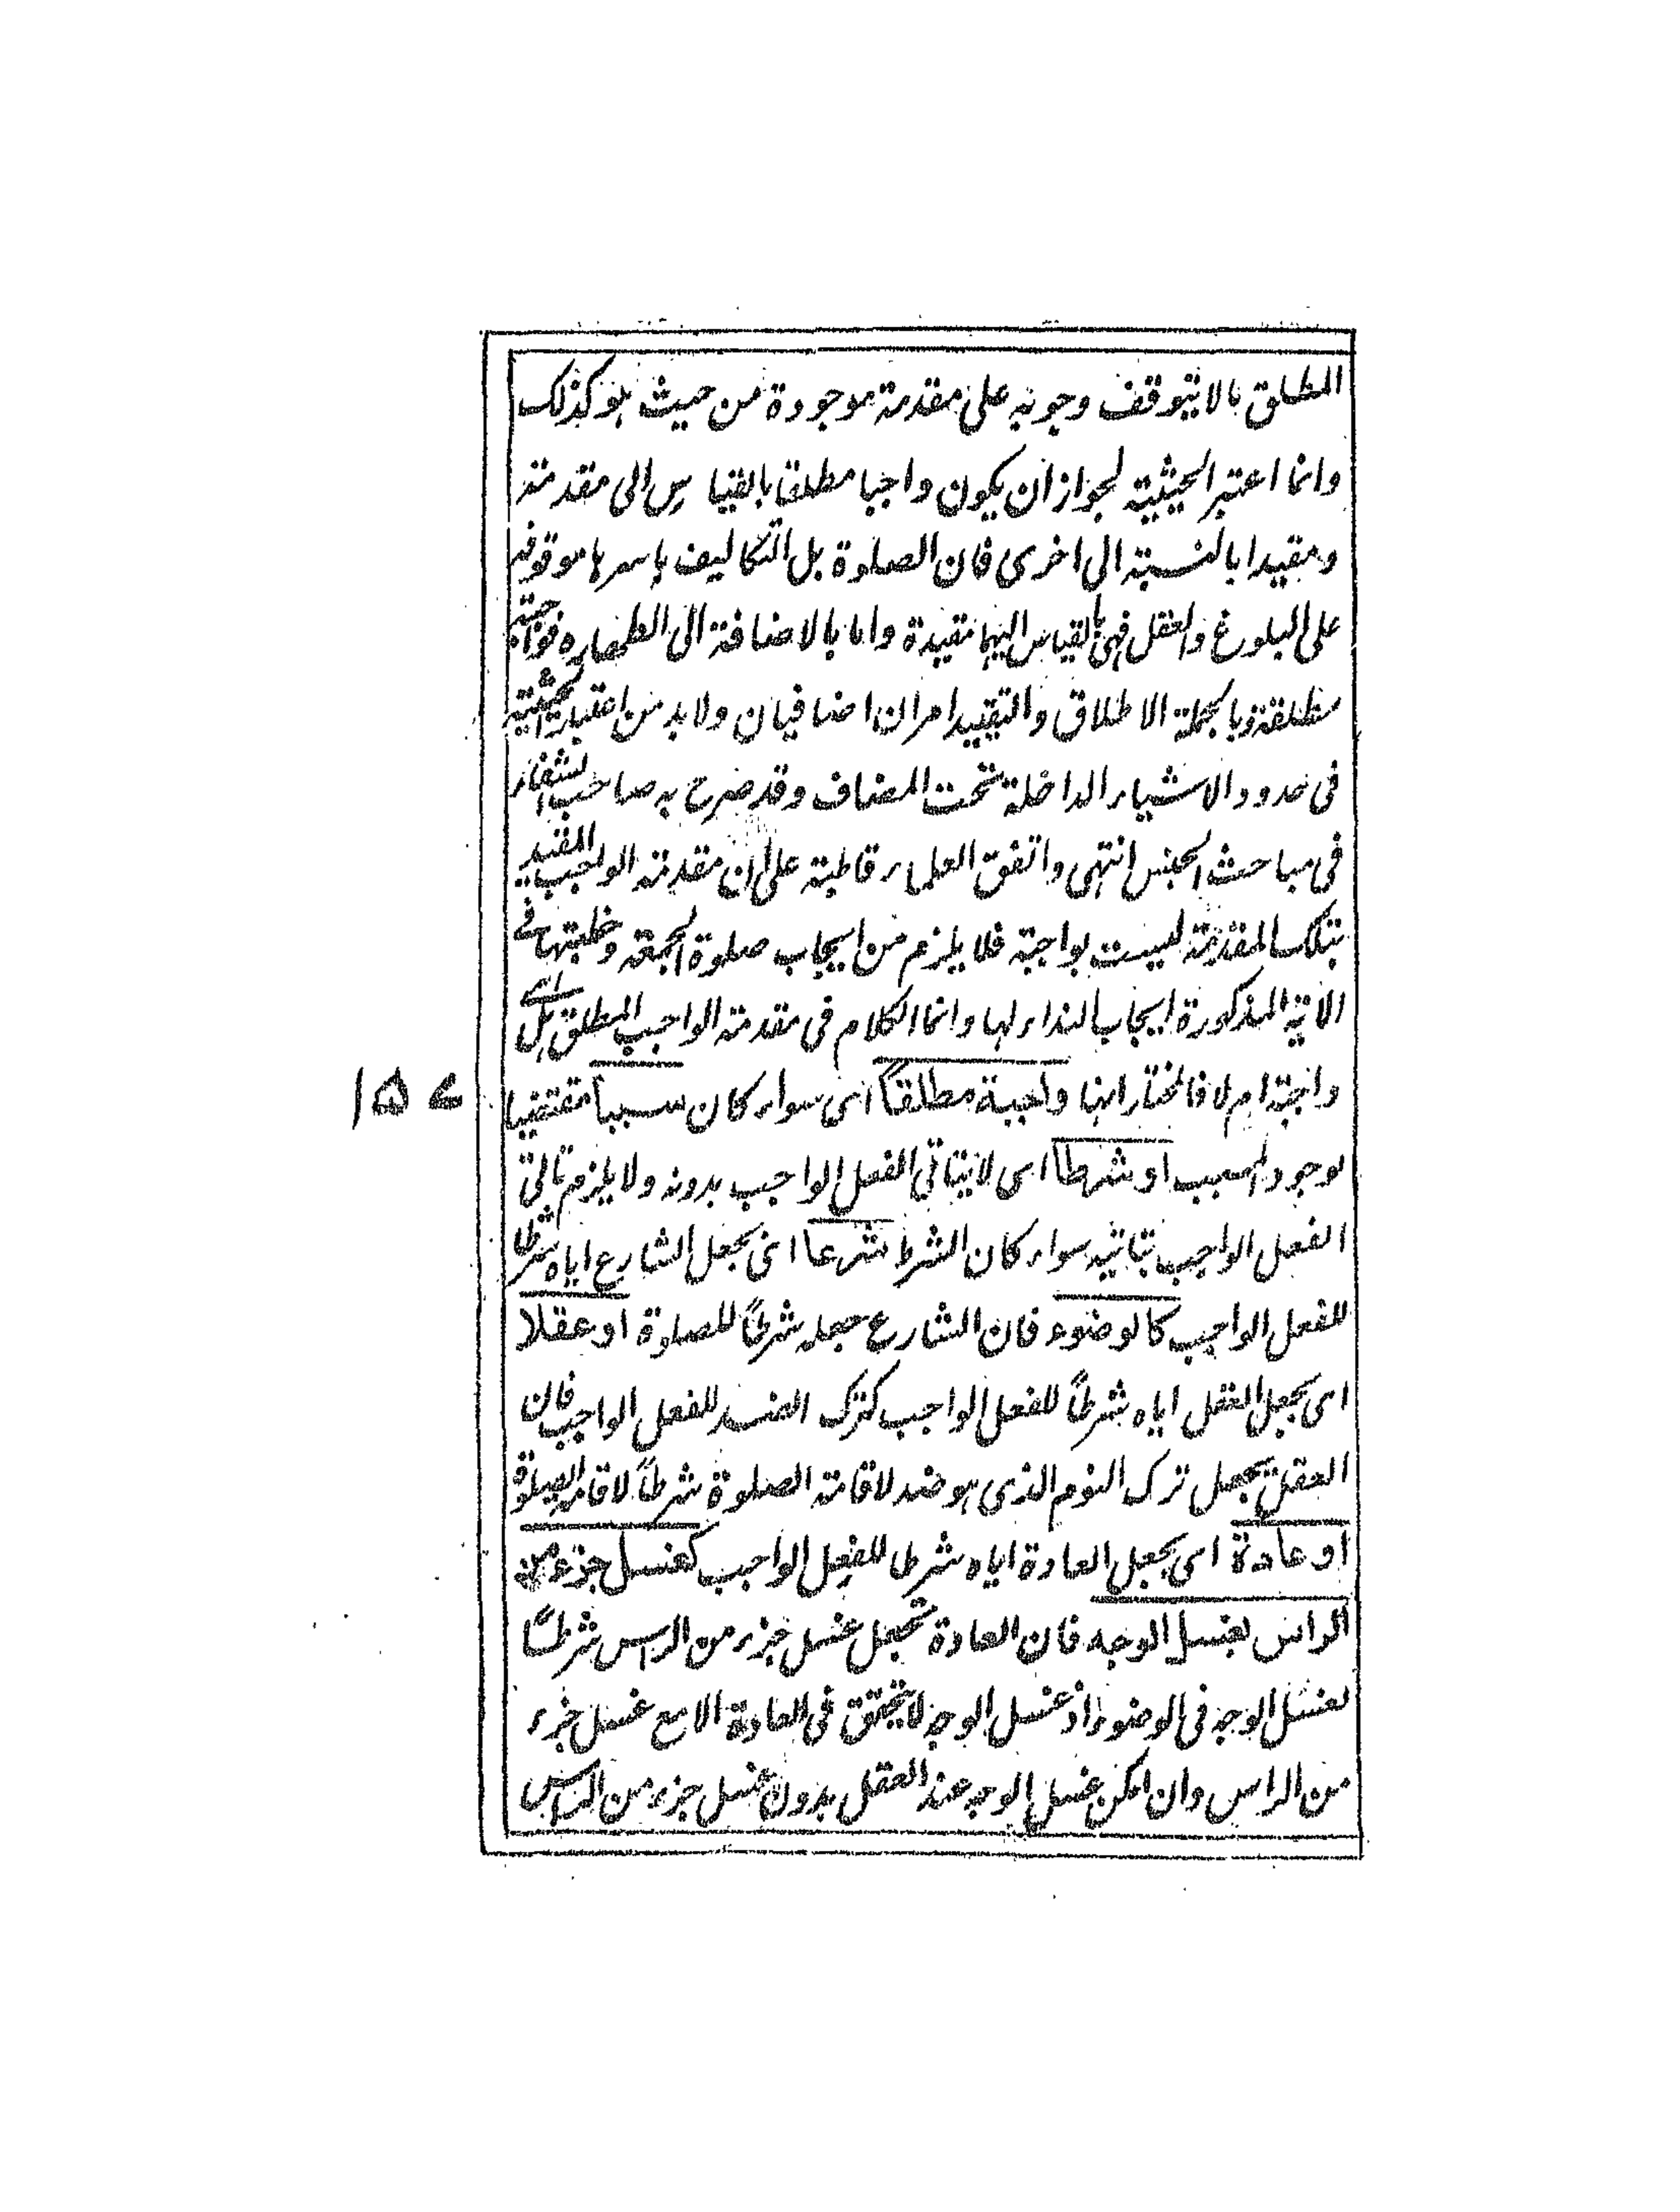 المطلق بالا يتوقف وجوبه على مقدمة موجودة من حيث هو كذلك
وانما اعتبر الحيثية لجواز ان يكون واجبا مطلقا بالقياس الى مقدمة
ومقيدا بالنسبة الى اخرى فان الصلوة بل التكاليف باسرها موقوفة
على البلوغ والعقل فهي بالقياس اليهما مقيدة واما بالاضافة الى الطهارة فواجبة
مطلقة وبالجملة الاطلاق والتقييد امران اضافيان ولابد من اعتبار الحيثية
فى حدود الاشياء الداخلة تحت المضاف وقد صرح به صاحب الشفاء
فى مباحث الجنس انتهى واتفق العلماء قاطبة على ان مقدمة الواجب المقيد
بتلك المقدمة ليست بواجبة فلا يلزم من ايجاب صلوة الجمعة وخطبتها فى
الاية المذكورة ايجاب النداء لها وانما الكلام فى مقدمة الواجب المطلق هل هى
واجبة ام لا فالمختار انها واجبة مطلقاً اى سواء كان سببا مقتضيا
لوجود المسبب او شرطاً اى لا يتاتى الفعل الواجب بدونه ولا يلزم تاتى
الفعل الواجب بتاتيه سواء كان الشرط شرعا اى بجعل الشارع اياه شرطا
للفعل الواجب كالوضوء فان الشارع جعله شرطاً للصلوة او عقلا
اى بجعل العقل اياه شرطاً للفعل الواجب كترك الضد للفعل الواجب فان
العقل يجعل ترك النوم الذى هو ضد لاقامة الصلوة شرطاً لاقامة الصلوة
او عادة اى بجعل العادة اياه شرطا للفعل الواجب كغسل جزء من
الراس لغسل الوجه فان العادة تجعل غسل جزء من الراس شرطاً
لغسل الوجه فى الوضوء اذ غسل الوجه لا يتحقق فى العادة الا مع غسل جزء
من الراس وان امكن غسل الوجه عند العقل بدون غسل جزء من الراس
۱۵۷